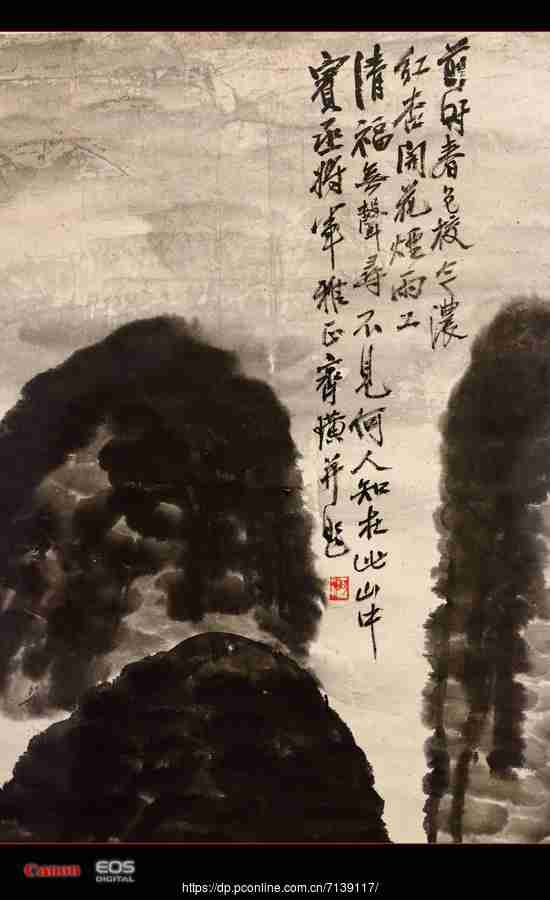 前時春色較今濃
紅杏開花煙雨工
清福無聲尋不見何人知在此山中
賓丞將軍雅正齊璜并題
Canon
EOS
DIGITAL
https://dp.pconline.com.cn/7139117/